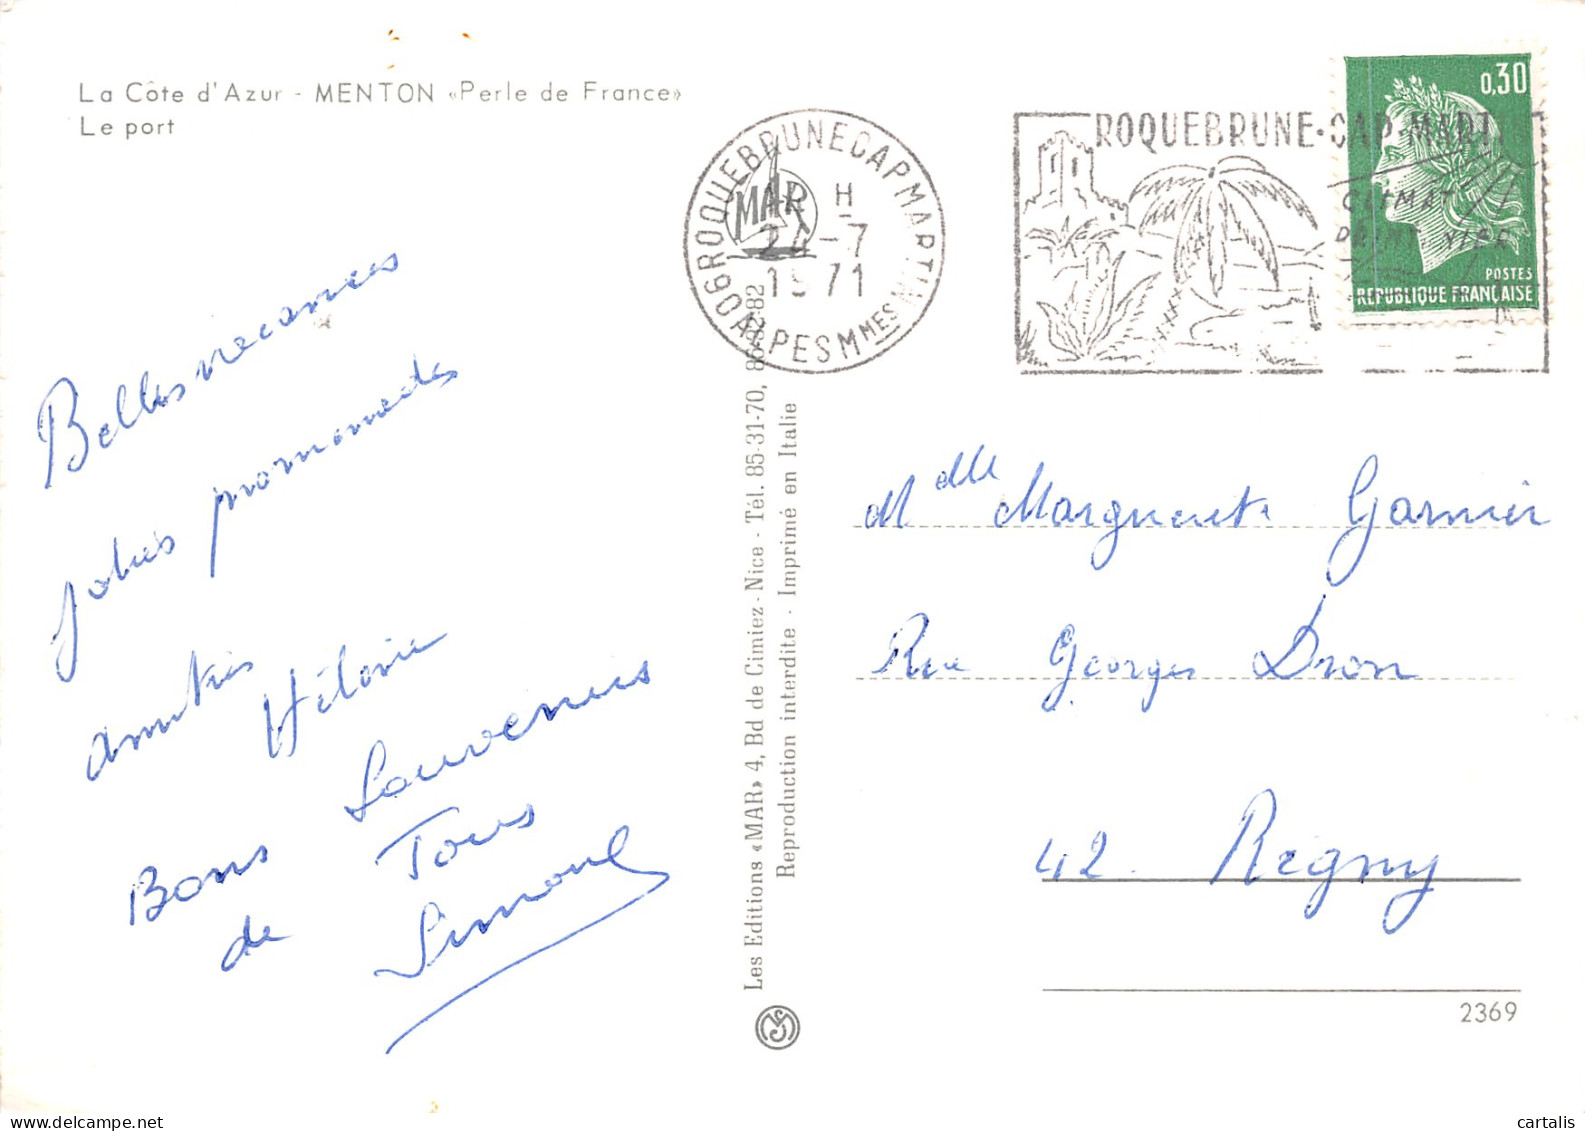 La Côte d'Azur - MENTON «Perle de France»
Le port
Belles vacances
jolies promenades
amitiés
Hélène
Bons Souvenirs
de Tous
Simone
Les Editions «MAR» 4, Bd de Cimiez - Nice - Tél. 85-31-70,
Reproduction interdite · Imprimé en Italie
MAR
06 ROQUEBRUNE CAP MARTIN
ALPES MMES
H
24-7
1971
ROQUEBRUNE-CAP-MARTIN
CLIMAT
0,30
POSTES
REPUBLIQUE FRANÇAISE
Mdlle Marguerite Garnier
Rue Georges Dron
42. Regny
2369